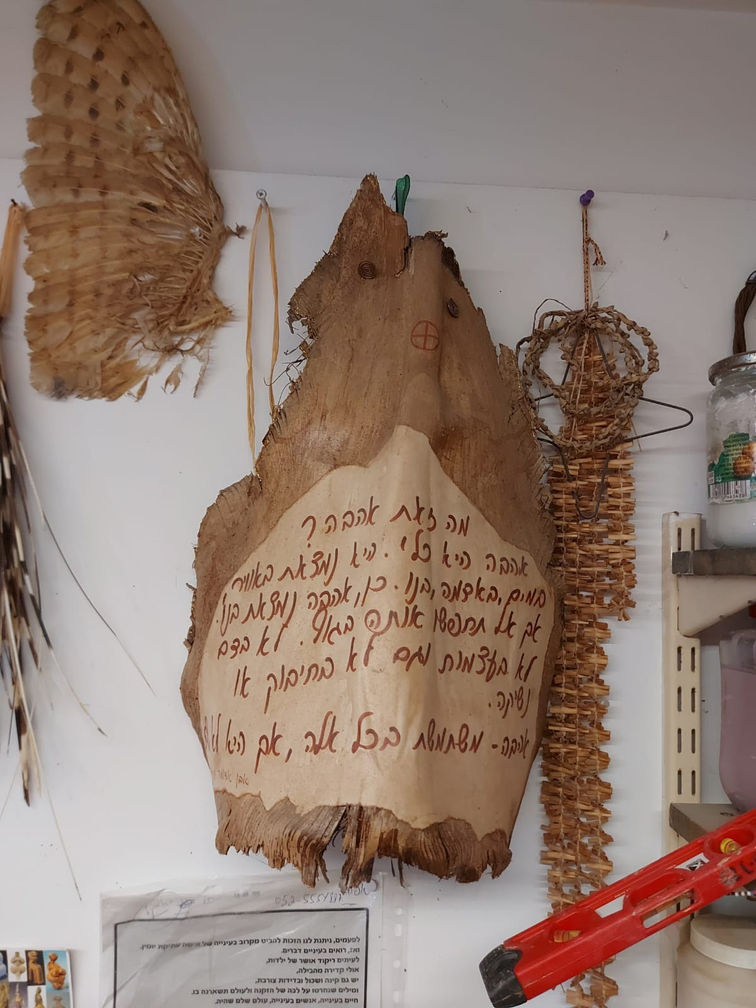 מה זאת אהבה?
אהבה היא כלי. היא נמצאת באוויר
במים, באדמה, בנו. כן, אהבה נמצאת בנו.
אך אל תחפשו אותה בגוף. לא בדם
לא בעצמות וגם לא בחיבוק או
נשיקה.
אהבה - משתמשת בכל אלה, אך היא לא
לפעמים, ניתנת לנו הזכות להביט מקרוב בעינייה של אישה עתיקת יומין.
ואז, רואים בעיניים דברים.
לעיתים ריקוד אושר של ילדות,
אולי קדירה מהבילה.
יש גם קינה ושכול ובדידות צורבת,
ומילים שנחרטו על לבה של הזקנה ולעולם תשארנה בו.
חיים בעינייה, אנשים בעינייה, עולם שלם שהיה.